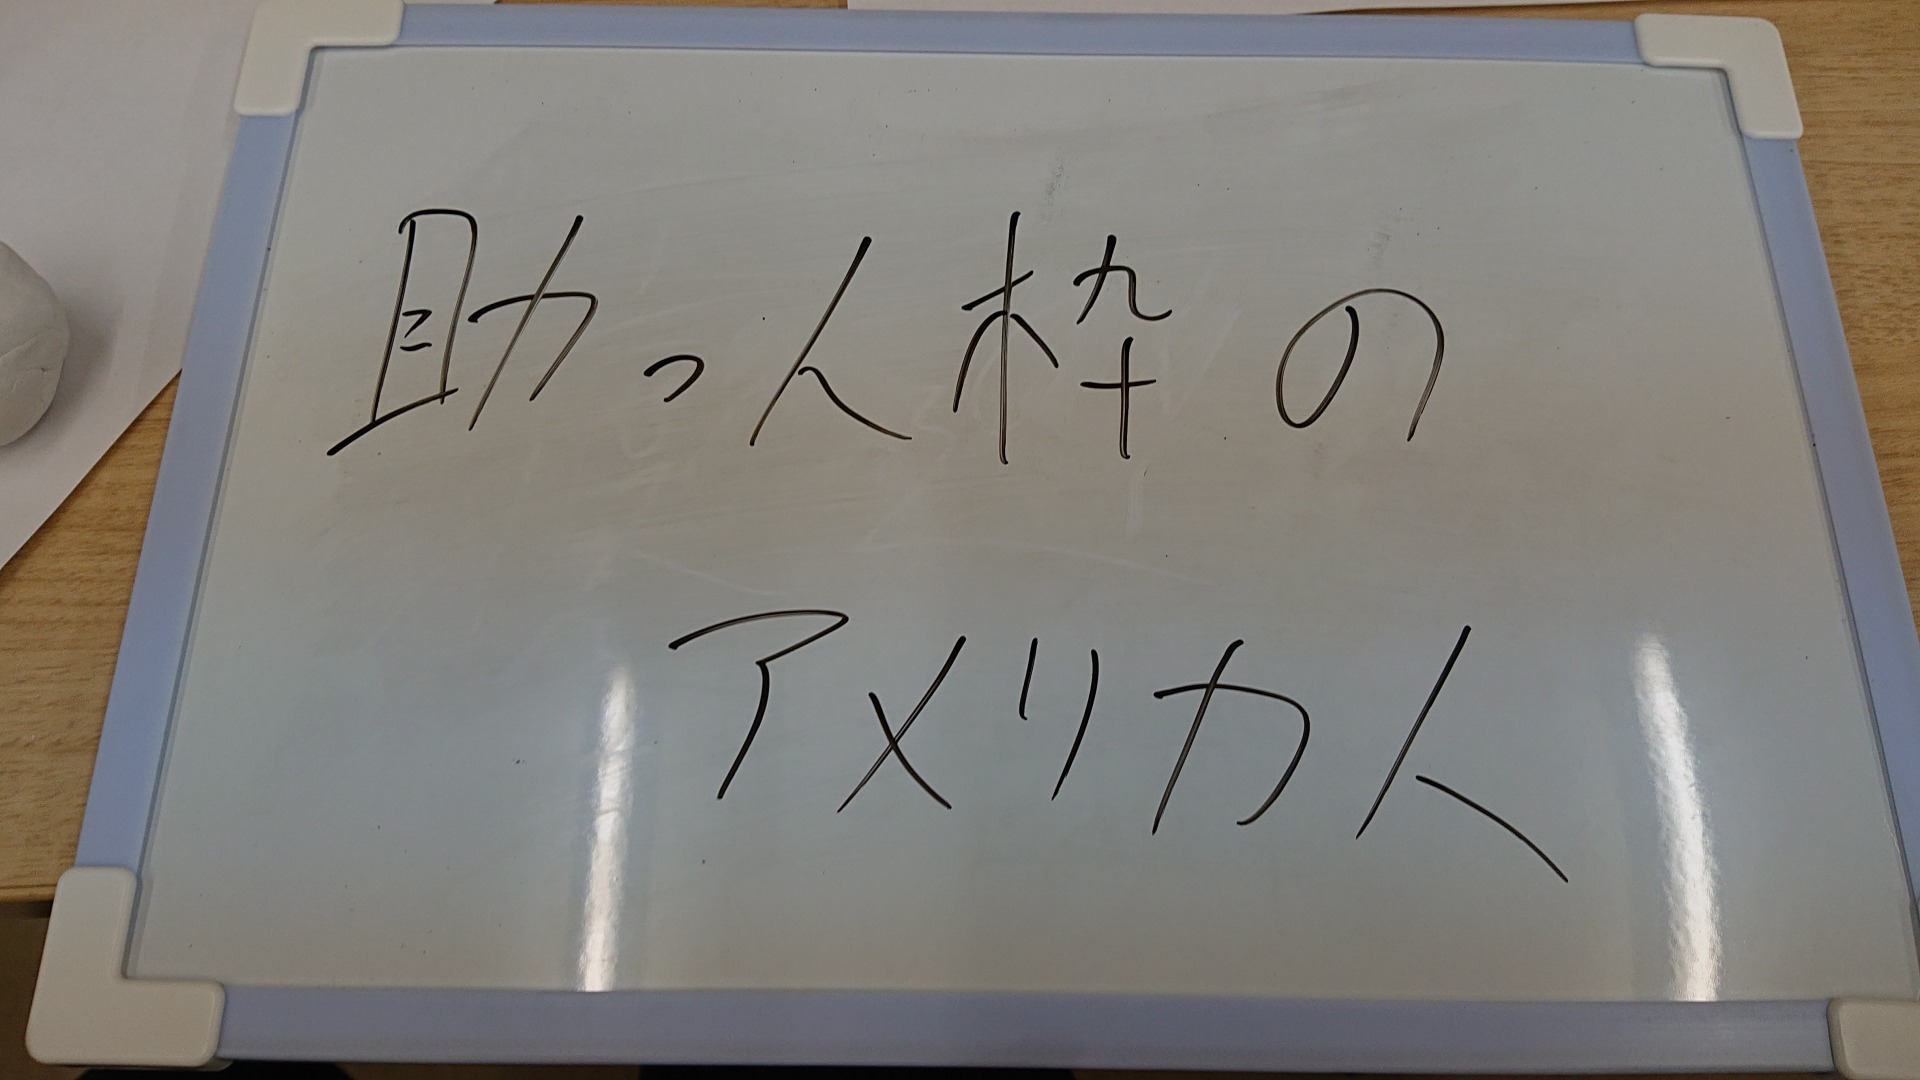 助っ人枠の
アメリカ人